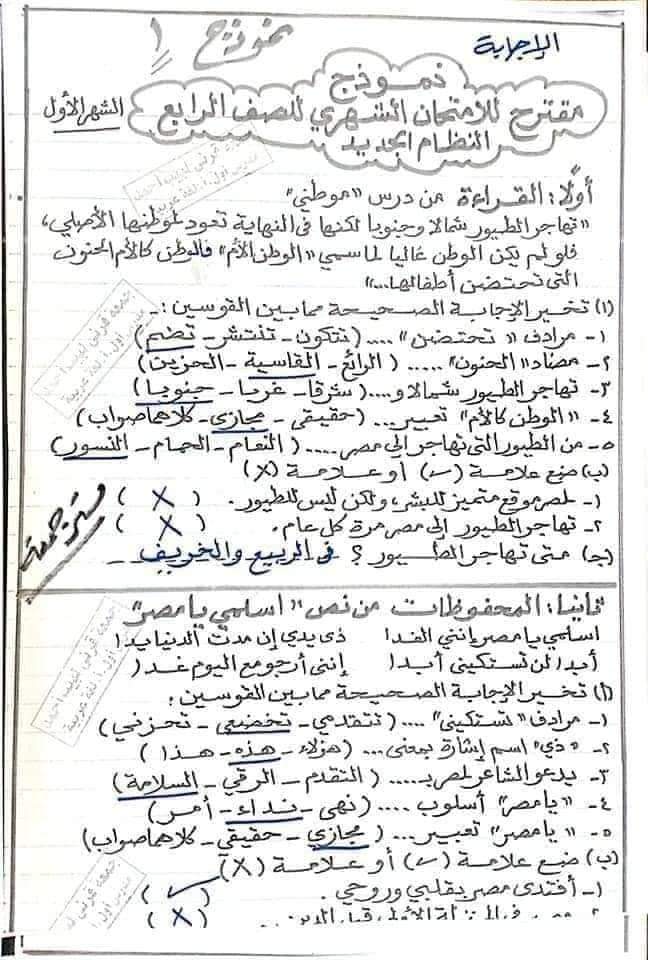 الإجابة
نموذج ١
نموذج
مقترح للامتحان الشهري للصف الرابع
الشهر الأول
النظام الجديد
أولًا: القراءة من درس "موطني"
"تهاجر الطيور شمالا وجنوبا لكنها في النهاية تعود لموطنها الأصلي،
فلو لم يكن الوطن غاليا لما سمي "الوطن الأم" فالوطن كالأم الحنون
التي تحتضن أطفالها..."
(أ) تخير الإجابة الصحيحة مما بين القوسين:ـ
١- مرادف "تحتضن" .... (تتكون - تنتشر - تضم)
٢- مضاد "الحنون" ..... (الرائع - القاسية - الحزين)
٣- تهاجر الطيور شمالا و.... (شرقا - غربا - جنوبا)
٤- "الوطن كالأم" تعبير... (حقيقي - مجازي - كلاهما صواب)
٥- من الطيور التي تهاجر إلى مصر..... (النعام - الحمام - النسور)
(ب) ضع علامة (✓) أو علامة (X)
١- لمصر موقع متميز للبشر، ولكن ليس للطيور. ( X )
٢- تهاجر الطيور إلى مصر مرة كل عام. ( X )
(جـ) متى تهاجر الطيور؟ في الربيع والخريف
ثانيا: المحفوظات من نص "اسلمي يا مصر"
اسلمي يا مصر إنني الفدا ذي يدي إن مدت الدنيا يدا
أبدا لن تستكيني أبدا إنني أرجو مع اليوم غدا
(أ) تخير الإجابة الصحيحة مما بين القوسين:
١- مرادف "تستكيني".... (تتقدمي - تخضعي - تحزني)
٢- "ذي" اسم إشارة بمعنى... (هؤلاء - هذه - هذا)
٣- يدعو الشاعر لمصر بـ.... (التقدم - الرقي - السلامة)
٤- "يا مصر" أسلوب ..... (نهى - نداء - أمر)
٥- "يا مصر" تعبير... (مجازي - حقيقي - كلاهما صواب)
(ب) ضع علامة (✓) أو علامة (X)
١- أفتدى مصر بقلبي وروحي. ( ✓ )
( X )